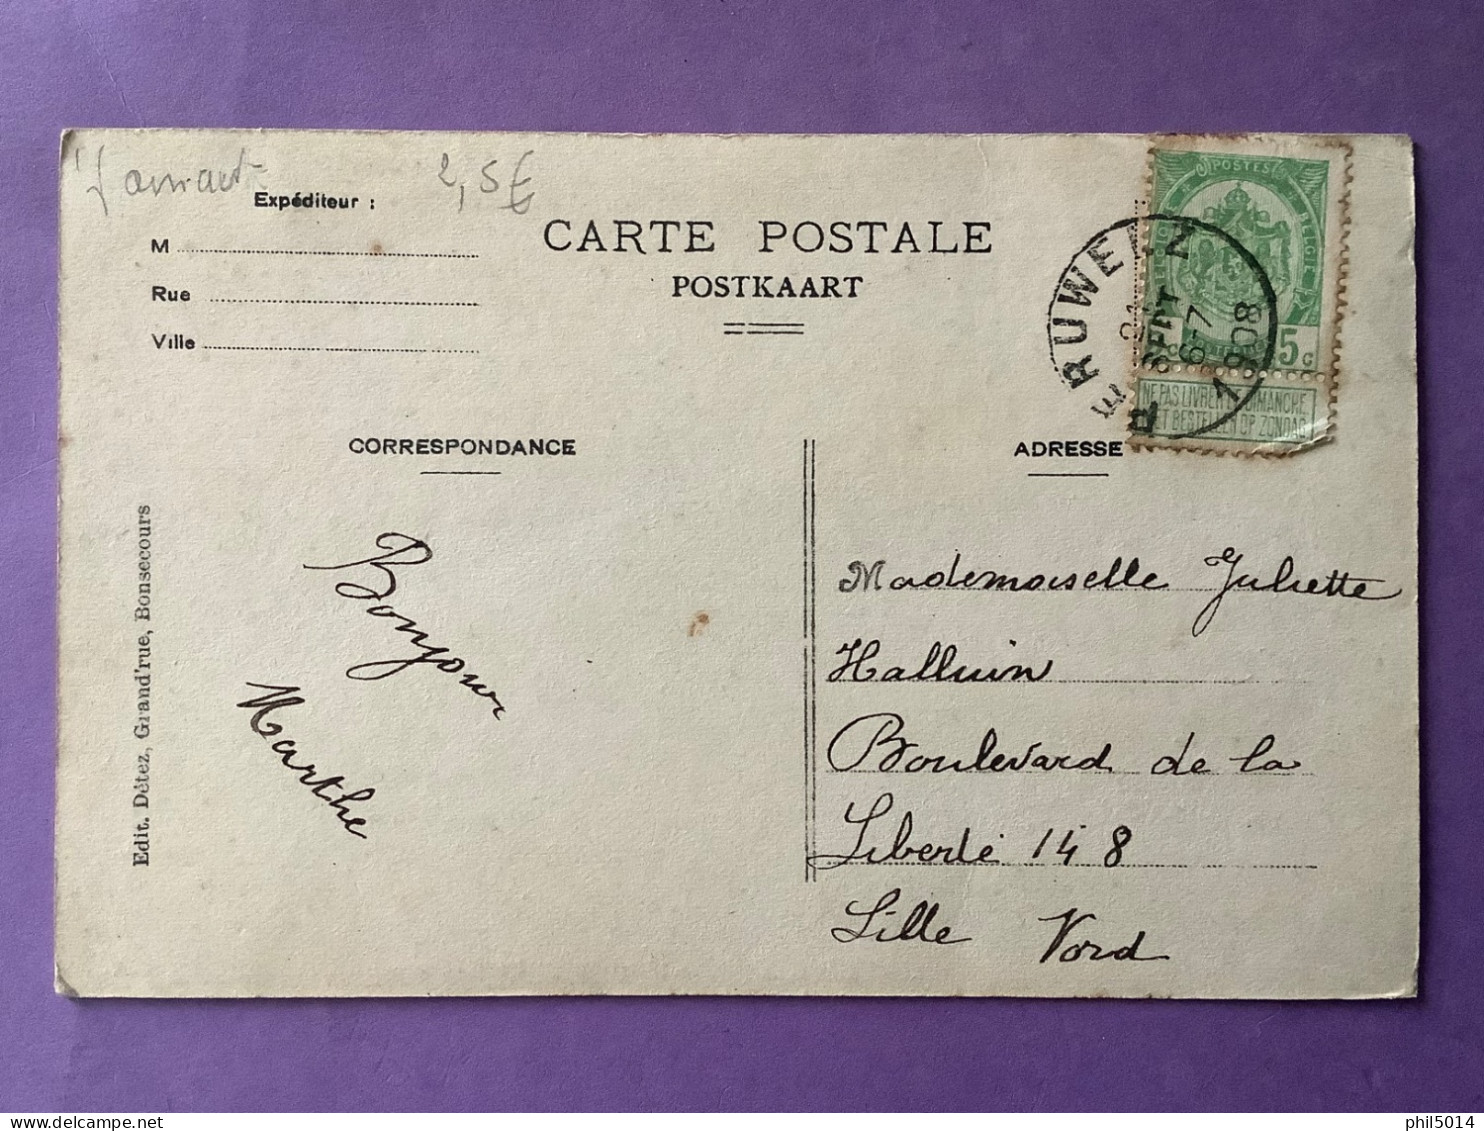 2,5€
Expéditeur :
M
Rue
Ville
CARTE POSTALE
POSTKAART
POSTES
BELGIE
5 C
NE PAS LIVRER LE DIMANCHE
NIET BESTELLEN OP ZONDAG
PERUWELZ
SEPT
6-7
1908
CORRESPONDANCE
ADRESSE
Edit. Détez, Grand'rue, Bonsecours
Bonjour
Marthe
Mademoiselle Juliette
Halluin
Boulevard de la
Liberté 148
Lille Nord
phil5014